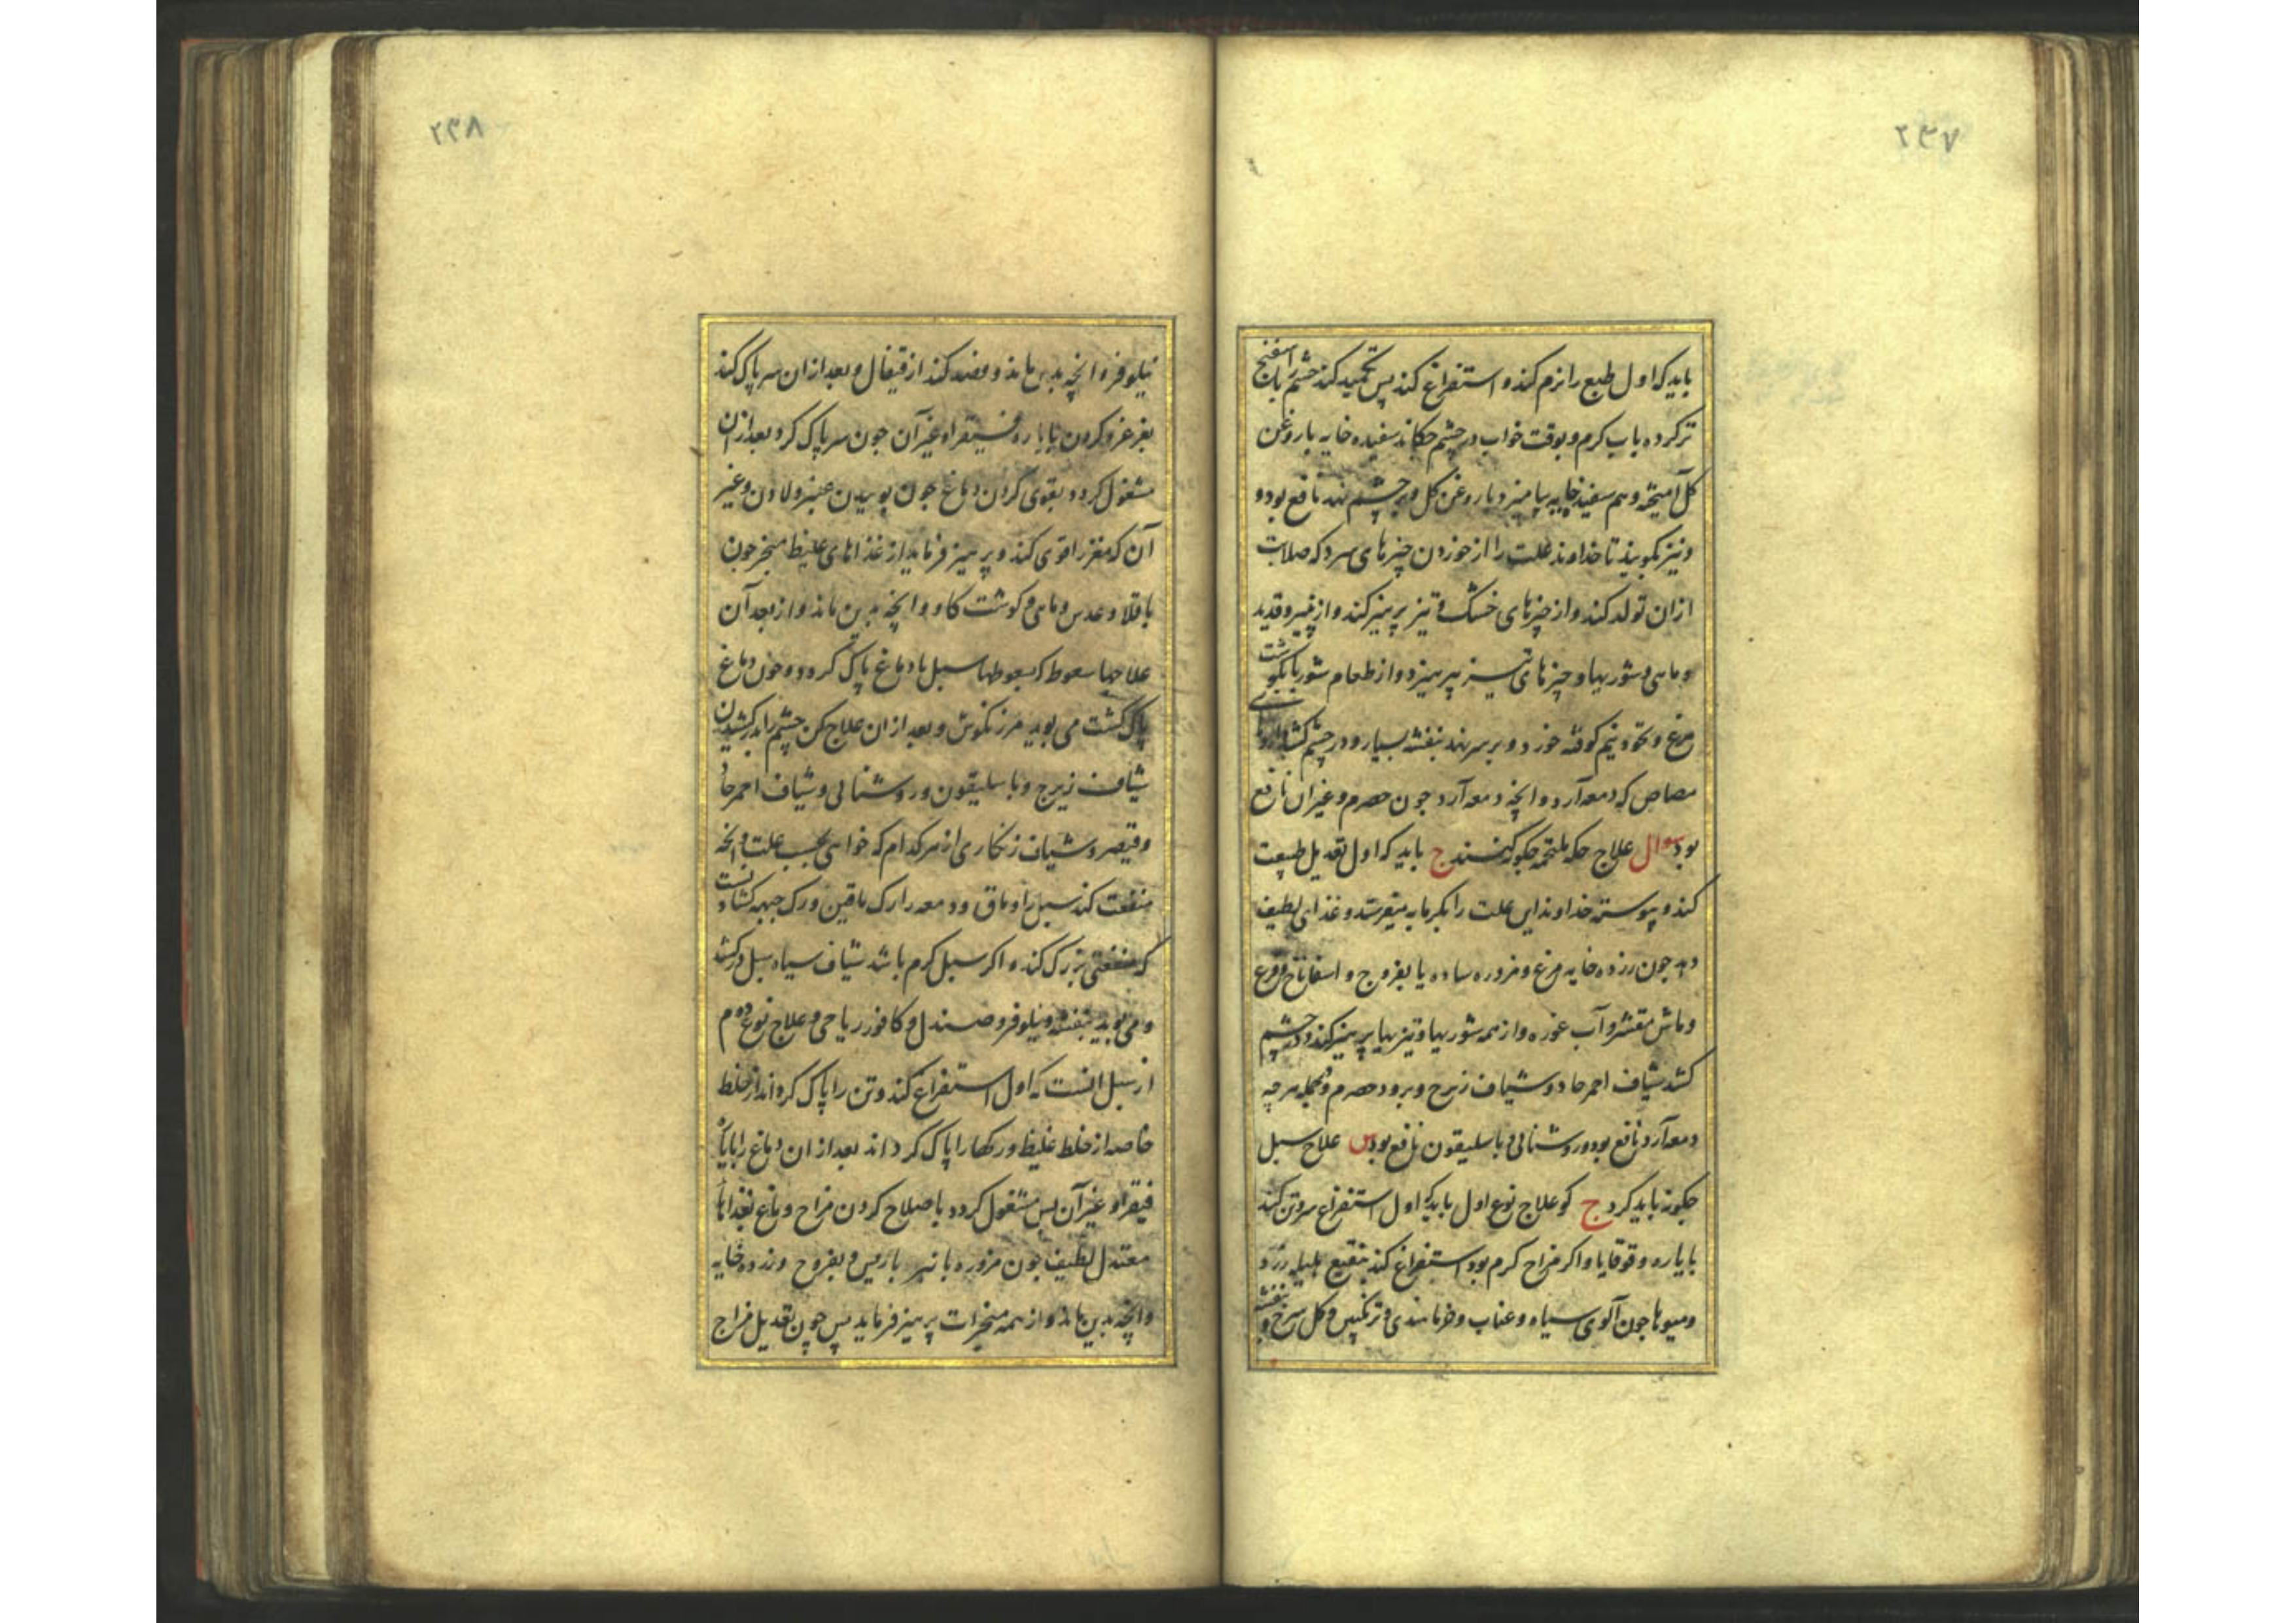 ۲۳۷
باید که اول طبع را نرم کند و استفراغ کند پس تکمید کند چشم را باسفنج
تر کرده باب کرم و بوقت خواب در چشم چکاند سفیده خایه با روغن
کل آمیخته و هم سفید خایه بیامیزد با روغن کل و بر چشم نهد نافع بود و
و نیز بکوید تا خداوند علت را از خوردن چیزهای سرد که صلابت
ازان تولد کند و از چیزهای خشک و تیز پرهیز کند و از پنیر و قدید
و ماهی و شوریها و چیزهای تیز بپرهیزد و از طعام شوربا بکوشت
مرغ و نخود نیم کوفته خورد و بر سر نهد بنفشه بسیار و در چشم کشد
که دمعه آرد و انچه دمعه آرد چون حصرم و غیر ان نافع
بود سوال علاج حکه ملتحمه چکونه کنند ج باید که اول تعدیل طبیعت
کند و پیوسته خداوند این علت را بکرمابه میفرستد و غذای لطیف
دهد چون زرده خایه مرغ و مزوره ساده یا بفروج و اسفاناخ و قرع
و ماش مقشر و آب غوره و از همه شوریها و تیزیها پرهیز کند و در چشم
کشد شیاف احمر حاد و شیاف زیرج و برود حصرم و بجمله هر چه
دمعه آرد نافع بود و روشنائی و باسلیقون نافع بود س علاج سبل
چکونه باید کرد ج کو علاج نوع اول باید که اول استفراغ سر و تن کند
بایاره و قوقایا و اکر مزاج کرم بود استفراغ کند بنقیع هلیله زرد
و میوها چون آلوی سیاه و عناب و خرما هندی و ترنکبین و کل سرخ و بنفشه
۲۳۸
نیلوفر و انچه بدین ماند و فصد کند از قیفال و بعد ازان سر پاک کند
بغرغره کردن بایاره فیقرا و غیر آن چون سر پاک کرد بعد ازان
مشغول کردد بقوی کردن دماغ چون بوییدن عنبر و لادن و غیر
آن که مغز را قوی کند و پرهیز فرماید از غذاهای غلیظ مبخر چون
باقلا و عدس و ماهی و کوشت کاو و انچه بدین ماند و از بعد آن
علاجها سعوط که بسعوطها سبل با دماغ پاک کردد و چون دماغ
پاک کشت می بوید مرزنکوش و بعد ازان علاج کن چشم را بدرکشیدن
شیاف زیرج و باسلیقون و روشنائی و شیاف احمر حاد
و قیصر و شیاف زنکاری از هر کدام که خواهی بحسب علت و انچه
منفعت کند سبل را و ماق و دمعه را رک ماقین و رک جبهه کشادنست
که منفعتی بزرک کند و اکر سبل کرم باشد شیاف سیاه سبل درکشد
و می بوید بنفشه و نیلوفر و صندل و کافور ریاحی و علاج نوع دوم
از سبل انست که اول استفراغ کند و تن را پاک کرداند از خلط
خاصه از خلط غلیظ و رکها را پاک کرداند بعد ازان دماغ را بایاره
فیقرا و غیر آن پس مشغول کردد باصلاح کردن مزاج دماغ بغذاها
معتدل لطیف چون مزوره با بفروج و زرده خایه
و انچه بدین ماند و از همه مبخرات پرهیز فرماید پس چون تعدیل مزاج